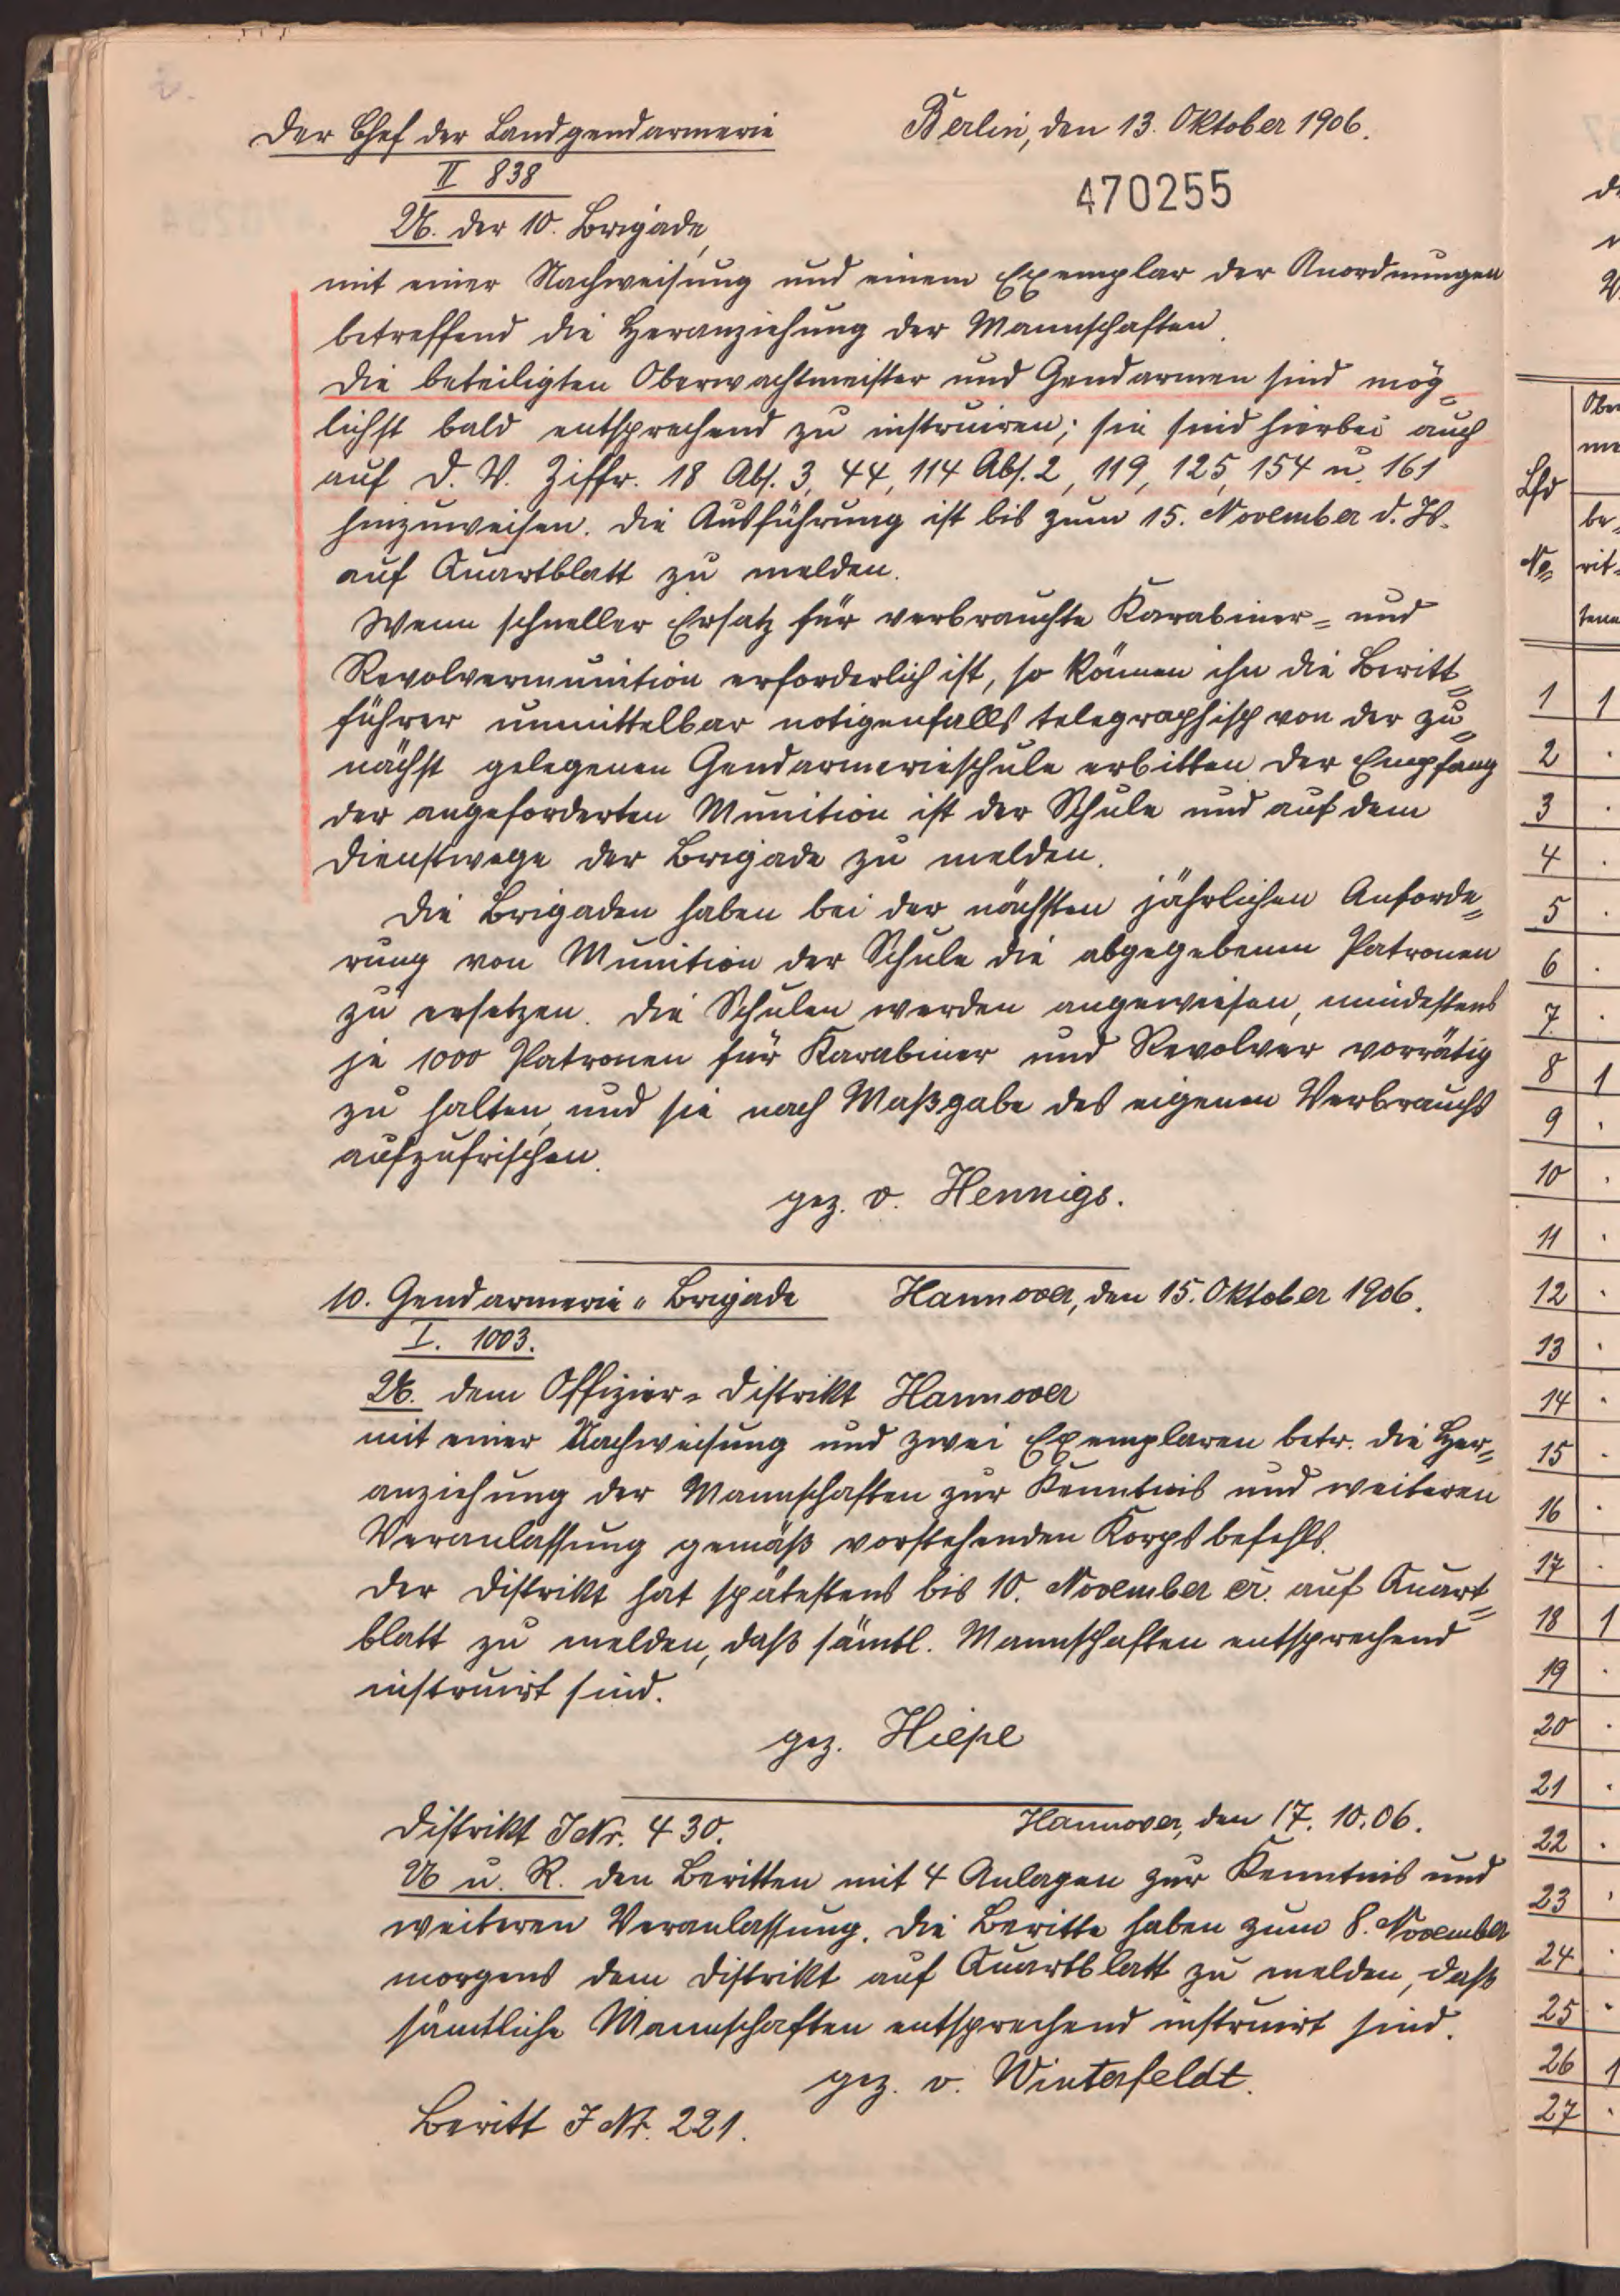 Der Chef der Landgendarmerie
Berlin, den 13. Oktober 1906.
II 838
470255
U. der 10. Brigade,
mit einer Nachweisung und einem Exemplar der Anordnungen
betreffend die Heranziehung der Mannschaften.
Die beteiligten Oberwachtmeister und Gendarmen sind mög=
lichst bald entsprechend zu instruiren; sie sind hierbei auch
auf D. V. Ziffr. 18 Abs. 3, 44, 114 Abs. 2, 119, 125, 154 u. 161
hinzuweisen. Die Ausführung ist bis zum 15. November d. Js.
auf Quartblatt zu melden.
Wenn schneller Ersatz für verbrauchte Karabiner= und
Revolvermunition erforderlich ist, so können ihn die Beritt=
führer unmittelbar notigenfalls telegraphisch von der zu=
nächst gelegenen Gendarmerieschule erbitten. Der Empfang
der angeforderten Munition ist der Schule und auf dem
Dienstwege der Brigade zu melden.
Die Brigaden haben bei der nächsten jährlichen Anforde=
rung von Munition der Schule die abgegebenen Patronen
zu ersetzen. Die Schulen werden angewiesen, mindestens
je 1000 Patronen für Karabiner und Revolver vorrätig
zu halten, und sie nach Maßgabe des eigenen Verbrauchs
aufzufrischen.
gez. v. Hennigs.
10. Gendarmerie=Brigade
Hannover, den 15. Oktober 1906.
I. 1003.
U. dem Offizier=Distrikt Hannover
mit einer Nachweisung und zwei Exemplaren betr. die Her=
anziehung der Mannschaften zur Kenntnis und weiteren
Veranlassung gemäß vorstehenden Korpsbefehls.
Der Distrikt hat spätestens bis 10. November cr. auf Quart=
blatt zu melden, daß sämtl. Mannschaften entsprechend
instruirt sind.
gez. Hiepe
Distrikt J Nr. 430.
Hannover, den 17. 10. 06.
U u. R. den Beritten mit 4 Anlagen zur Kenntnis und
weiteren Veranlassung. Die Beritte haben zum 8. November
morgens dem Distrikt auf Quartblatt zu melden, daß
sämtliche Mannschaften entsprechend instruirt sind.
gez. v. Winterfeldt.
Beritt J Nr. 221.
Lfd
No
be=
rit=
tene
1 1
2
3
4
5
6
7
8 1
9
10
11
12
13
14
15
16
17
18 1
19
20
21
22
23
24
25
26 1
27